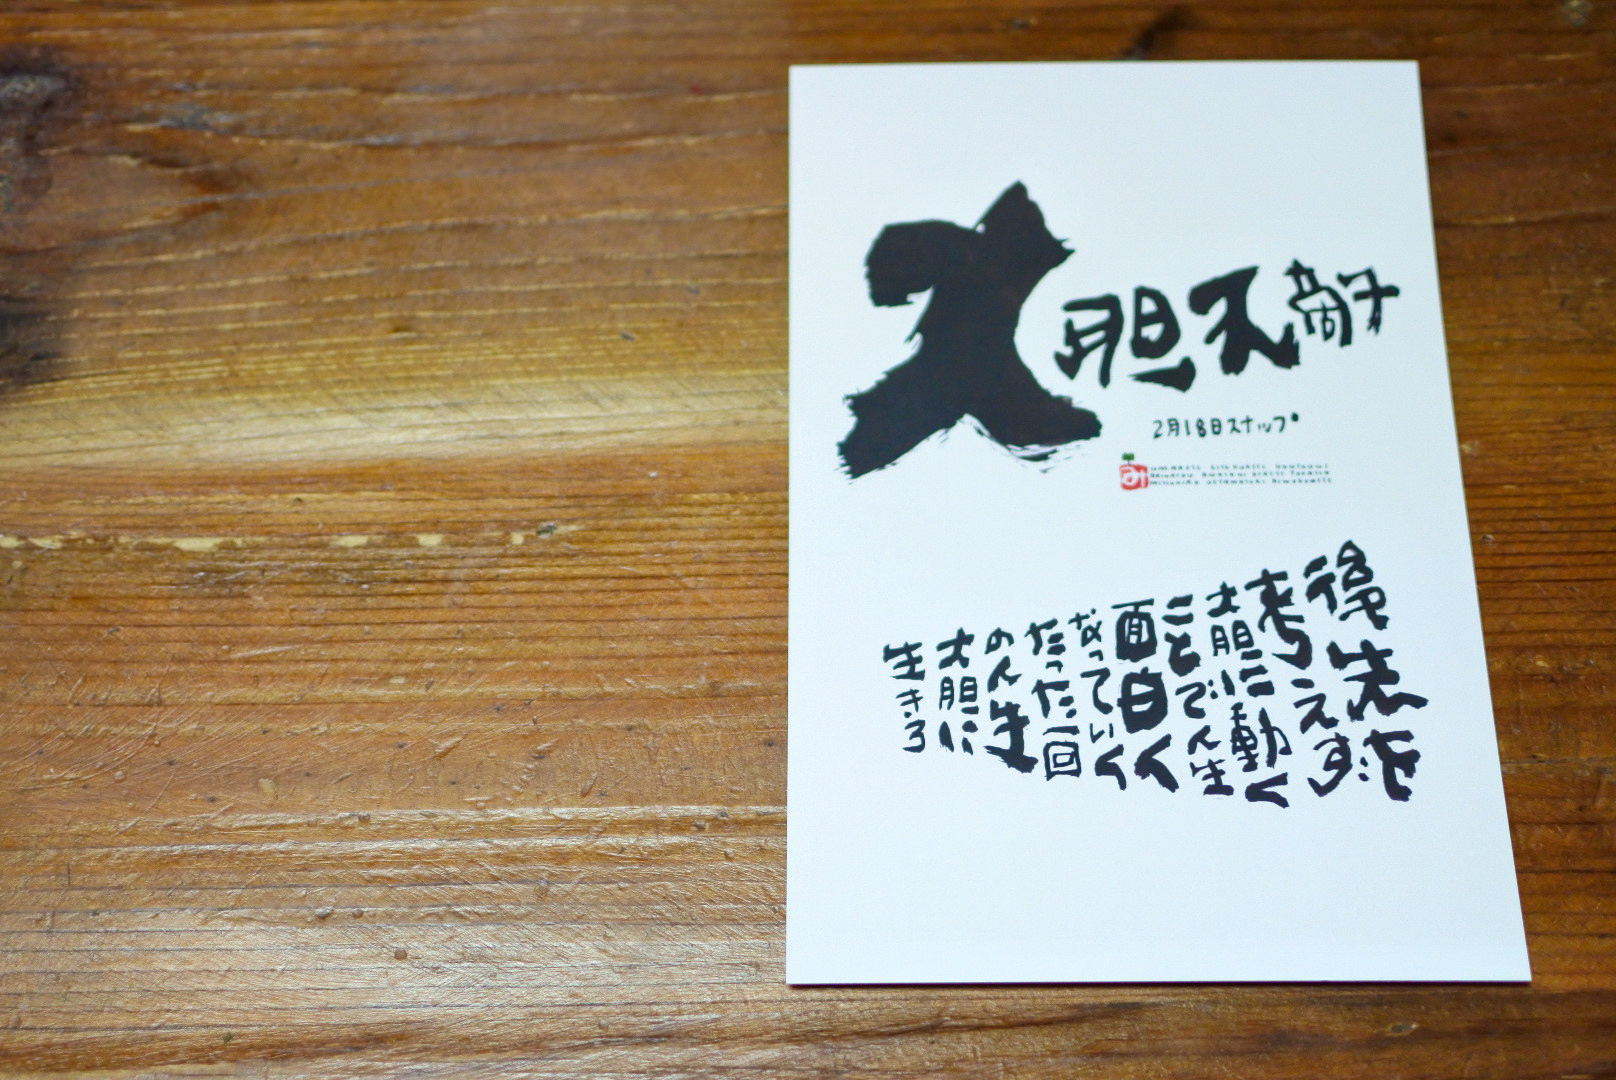 大胆不敵
2月18日スナップ
み
後先を
考えず
大胆に動く
ことで人生
面白く
なっていく
たった一回
の人生
大胆に
生きろ